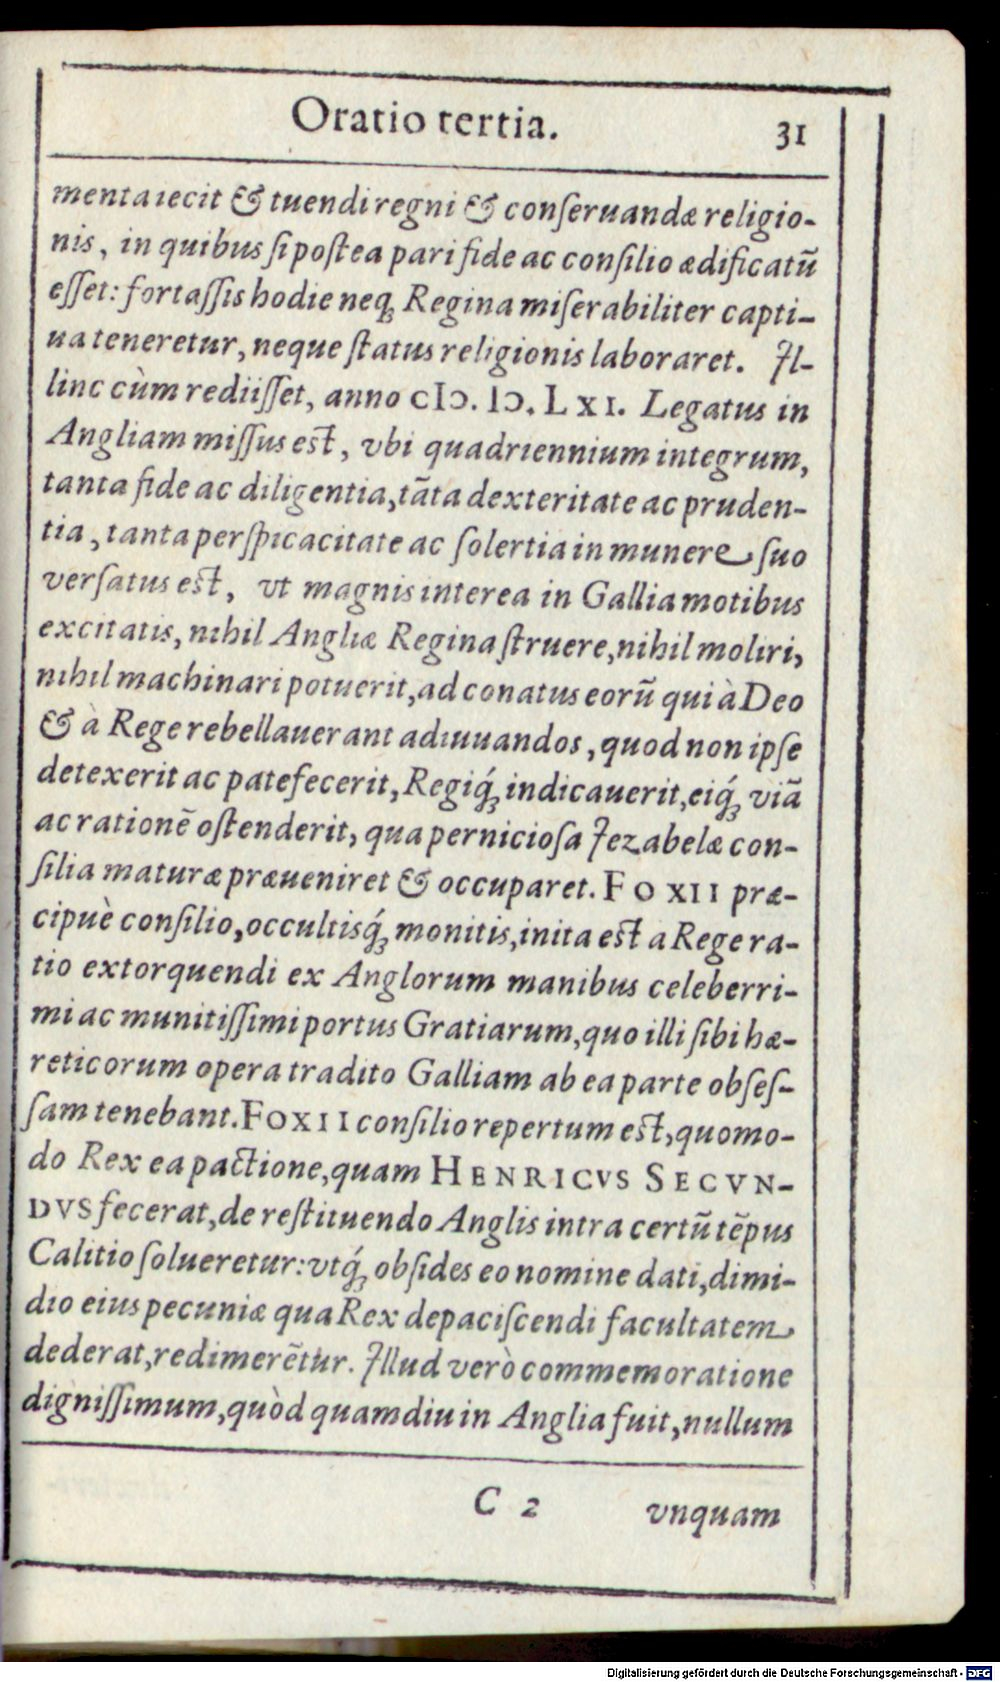 Oratio tertia. 31
menta iecit & tuendi regni & conſeruandæ religio-
nis, in quibus ſi poſtea pari fide ac conſilio ædificatũ
eſſet: fortaſſis hodie neqꝫ Regina miſerabiliter capti-
ua teneretur, neque ſtatus religionis laboraret. Il-
linc cùm rediiſſet, anno cIɔ. Iɔ. LXI. Legatus in
Angliam miſſus eſt, vbi quadriennium integrum,
tanta fide ac diligentia, tãta dexteritate ac pruden-
tia, tanta perſpicacitate ac ſolertia in munere ſuo
verſatus eſt, vt magnis interea in Gallia motibus
excitatis, nihil Angliæ Regina ſtruere, nihil moliri,
nihil machinari potuerit, ad conatus eorũ qui à Deo
& à Rege rebellauerant adiuuandos, quod non ipſe
detexerit ac patefecerit, Regiq́ꝫ indicauerit, eiq́ꝫ viã
ac rationẽ oſtenderit, qua pernicioſa Iezabelæ con-
ſilia maturæ præueniret & occuparet. FOXII præ-
cipuè conſilio, occultisq́ꝫ monitis, inita eſt a Rege ra-
tio extorquendi ex Anglorum manibus celeberri-
mi ac munitiſſimi portus Gratiarum, quo illi ſibi hæ-
reticorum opera tradito Galliam ab ea parte obſeſ-
ſam tenebant. FOXII conſilio repertum eſt, quomo-
do Rex ea pactione, quam HENRICVS SECVN-
DVS fecerat, de reſtituendo Anglis intra certũ tẽpus
Calitio ſolueretur: vtq́ꝫ obſides eo nomine dati, dimi-
dio eius pecuniæ qua Rex depaciſcendi facultatem
dederat, redimerẽtur. Illud verò commemoratione
digniſſimum, quòd quamdiu in Anglia fuit, nullum
C 2 vnquam
Digitalisierung gefördert durch die Deutsche Forschungsgemeinschaft - DFG